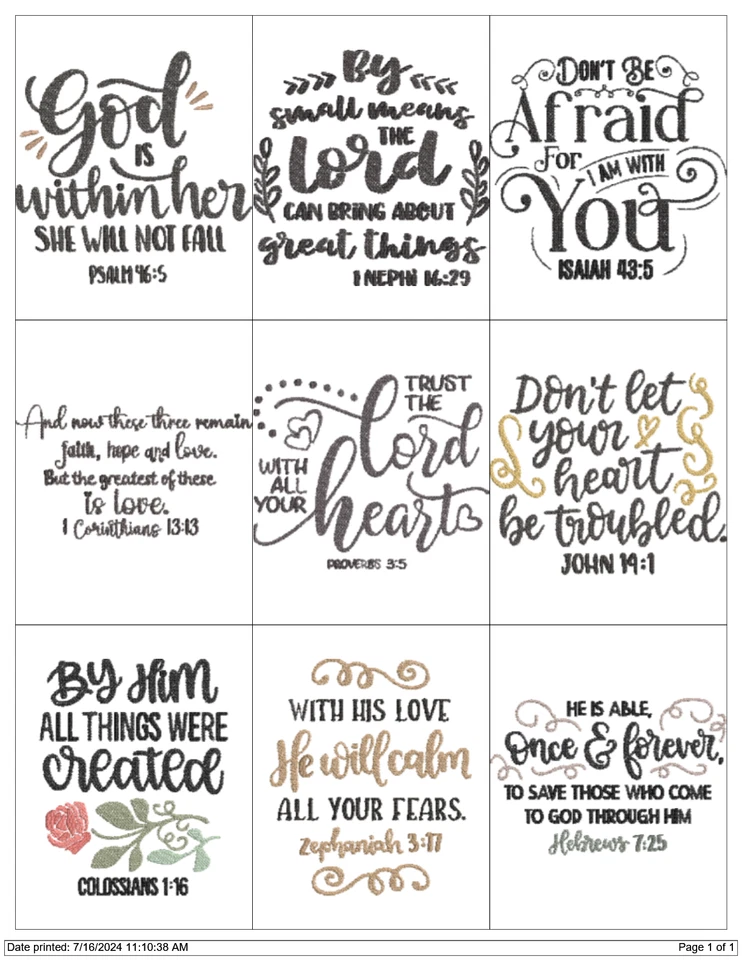 God
IS
within her
SHE WILL NOT FALL
PSALM 46:5
By
small means
THE
lord
CAN BRING ABOUT
great things
1 NEPHI 16:29
DON'T BE
Afraid
For
I AM WITH
You
ISAIAH 43:5
And now these three remain
faith, hope and love.
But the greatest of these
is love.
1 Corinthians 13:13
TRUST
THE
lord
WITH
ALL
YOUR
heart
PROVERBS 3:5
Don't let
your
heart
be troubled.
JOHN 14:1
By Him
ALL THINGS WERE
created
COLOSSIANS 1:16
WITH HIS LOVE
He will calm
ALL YOUR FEARS.
Zephaniah 3:17
HE IS ABLE,
Once & forever,
TO SAVE THOSE WHO COME
TO GOD THROUGH HIM
Hebrews 7:25
Date printed: 7/16/2024 11:10:38 AM
Page 1 of 1